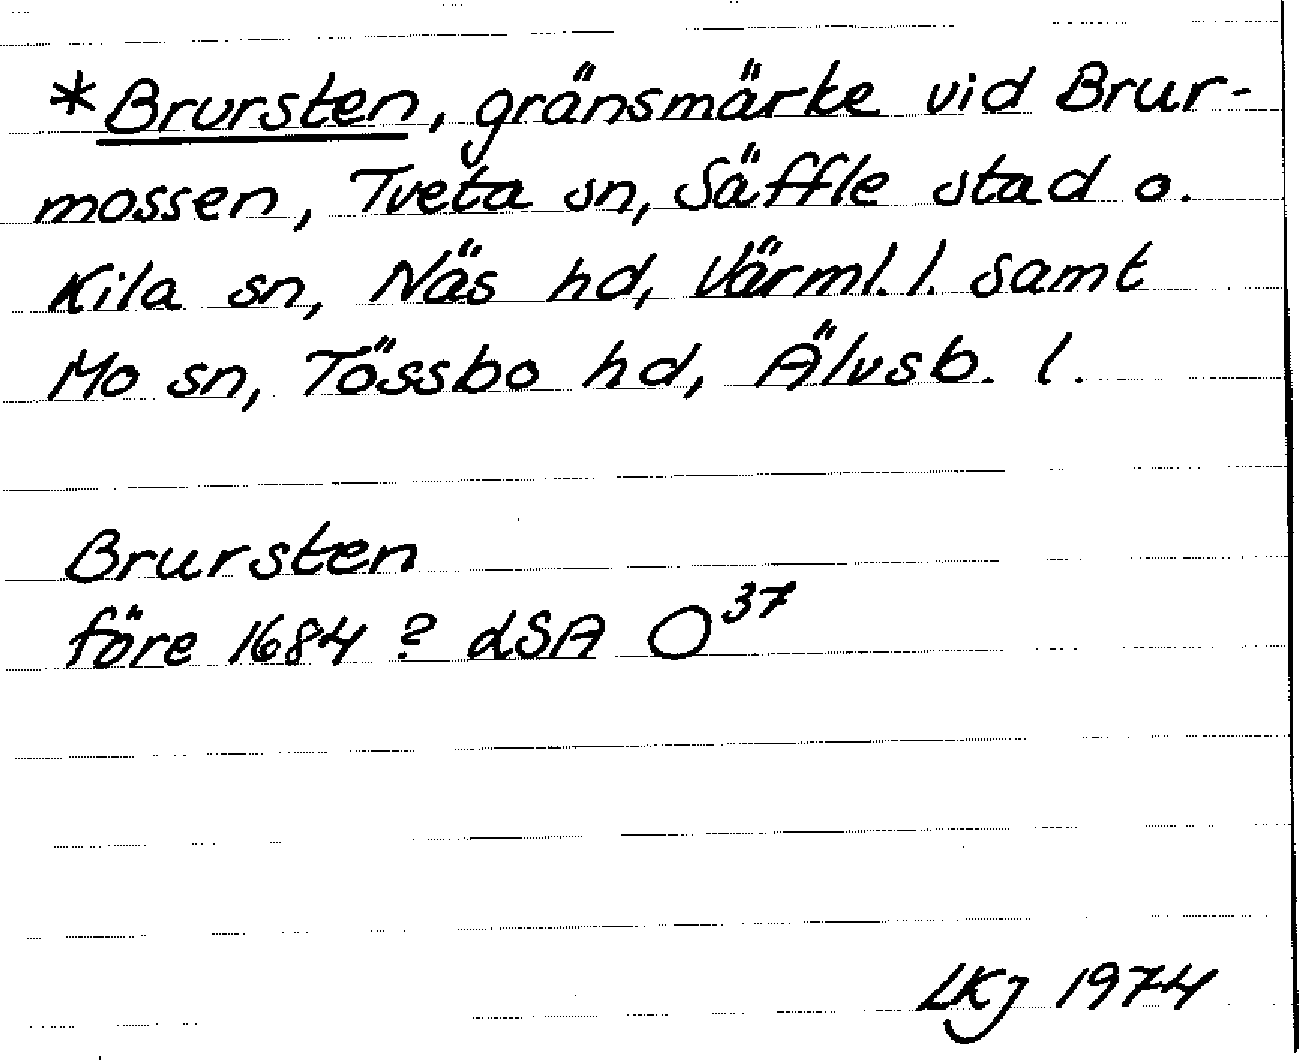 *Brursten, gränsmärke vid Brur-
mossen, Tveta sn, Säffle stad o.
Kila sn, Näs hd, Värml. l. samt
Mo sn, Tössbo hd, Älvsb. l.
Brursten
före 1684 ? LSA O37
LKJ 1974